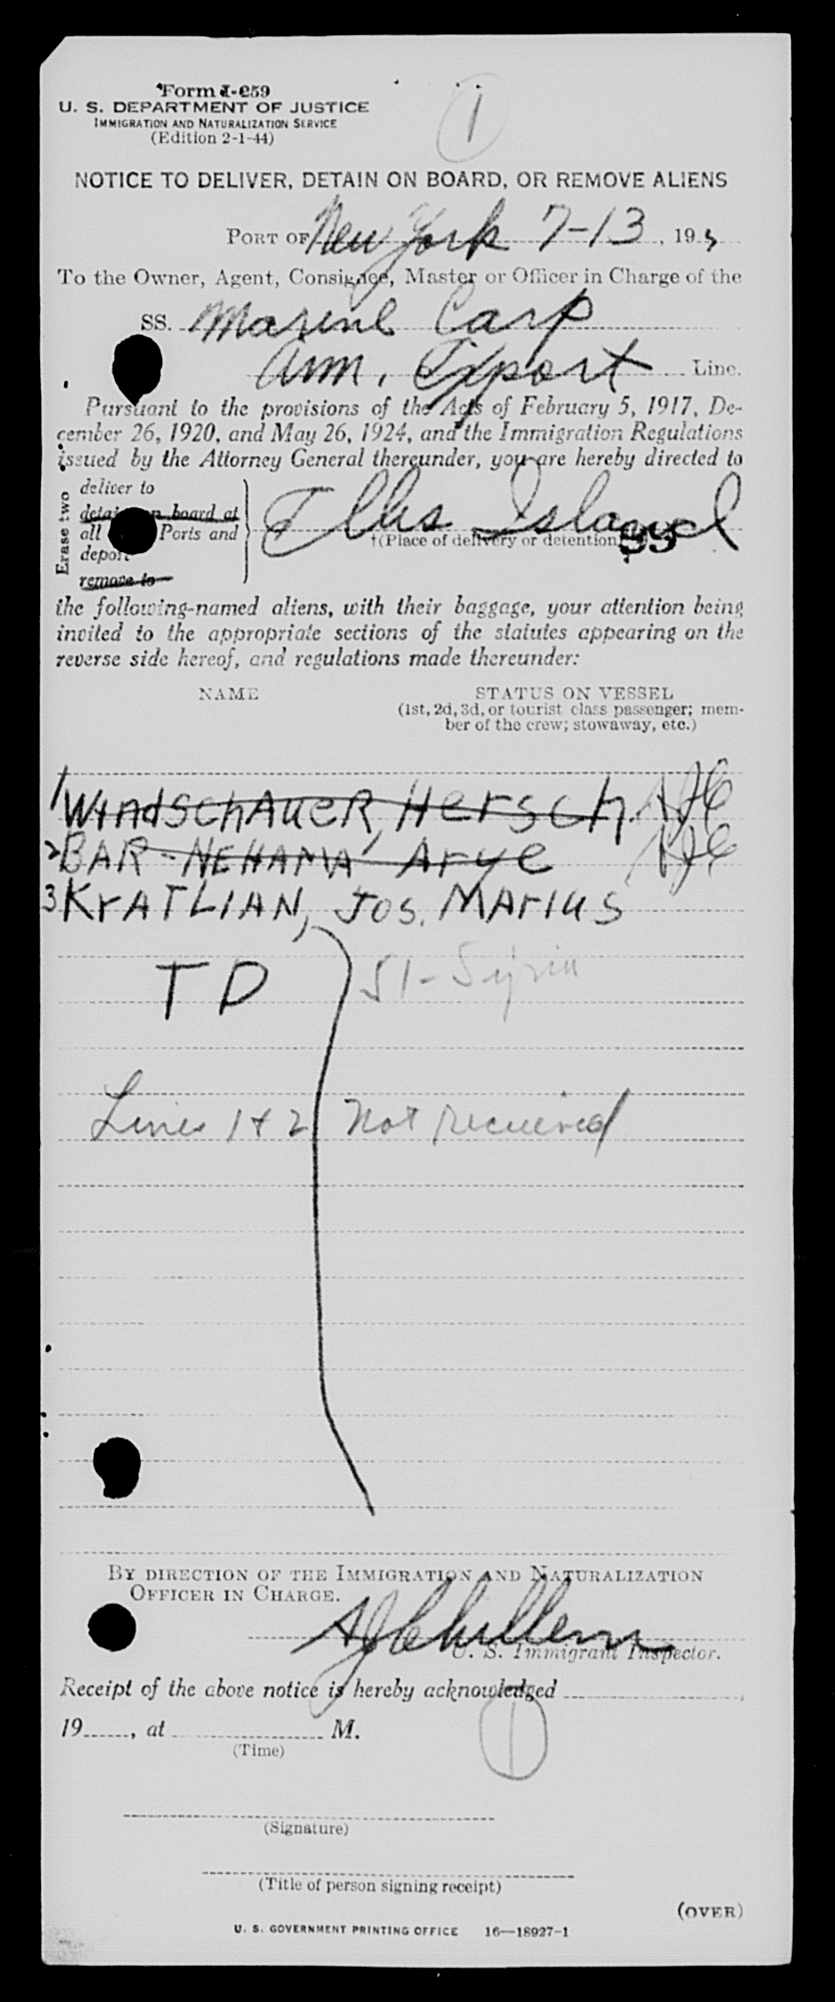 Form I-259
U. S. DEPARTMENT OF JUSTICE
IMMIGRATION AND NATURALIZATION SERVICE
(Edition 2-1-44)
1
NOTICE TO DELIVER, DETAIN ON BOARD, OR REMOVE ALIENS
PORT OF New York 7-13, 19
To the Owner, Agent, Consignee, Master or Officer in Charge of the
SS. Marine Carp
Am. Export Line.
Pursuant to the provisions of the Acts of February 5, 1917, De-
cember 26, 1920, and May 26, 1924, and the Immigration Regulations
issued by the Attorney General thereunder, you are hereby directed to
Erase two
deliver to
detain on board at
all Ports and
deport
remove to
Ellis Island
†(Place of delivery or detention)
the following-named aliens, with their baggage, your attention being
invited to the appropriate sections of the statutes appearing on the
reverse side hereof, and regulations made thereunder:
NAME STATUS ON VESSEL
(1st, 2d, 3d, or tourist class passenger; mem-
ber of the crew; stowaway, etc.)
1 WindschAueR, Hersch
2 BAR-NEHAMA Arye
3 KrATLIAN, Jos. MArius
TD 51-Syria
Lines 1+2 not received
BY DIRECTION OF THE IMMIGRATION AND NATURALIZATION
OFFICER IN CHARGE.
U. S. Immigrant Inspector.
Receipt of the above notice is hereby acknowledged
19, at M.
(Time)
1
(Signature)
(Title of person signing receipt)
(OVER)
U. S. GOVERNMENT PRINTING OFFICE 16—18927-1